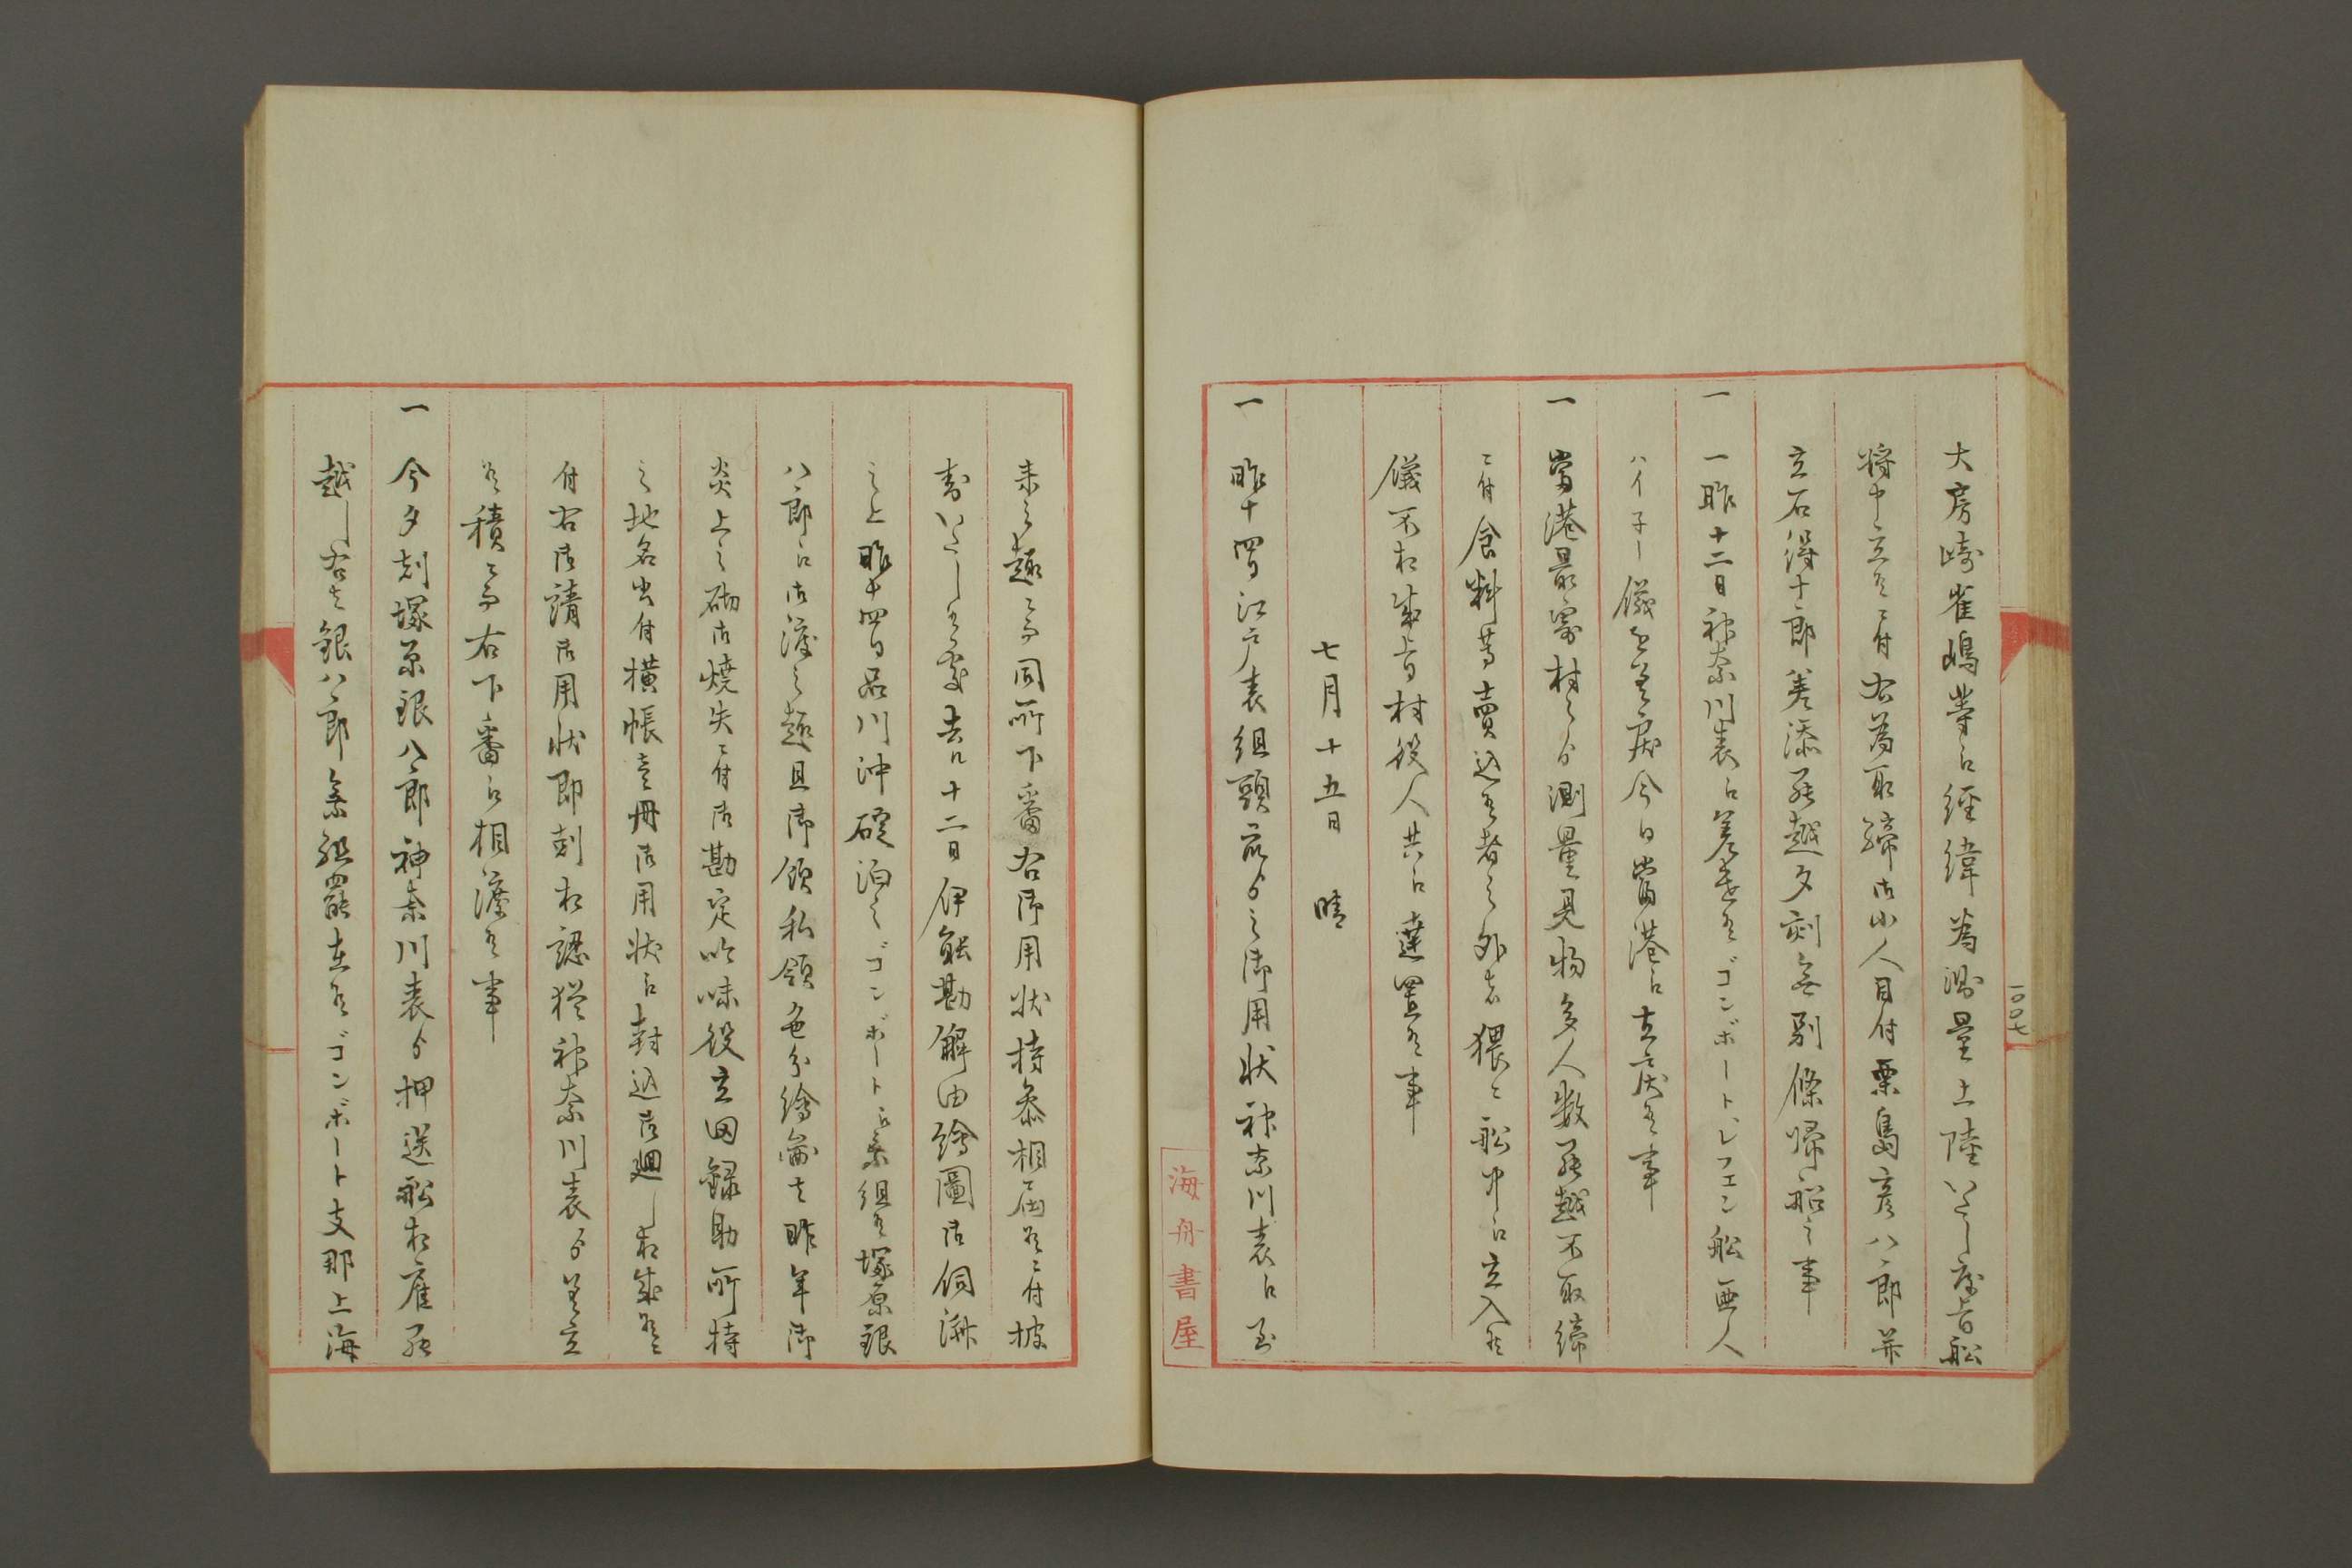 大房崎雀嶋等江経緯為測量上陸いたし度旨船
将申立候ニ付右為取締御小人目付栗島彦八郎并
立石得十郎差添罷越夕刻無別條帰船之事
一 一昨十二日神奈川表江差遣候ゴンボート、レフエン船亜人
ハイ子ー儀を差戻今日當港江立戻候事
一 當港最寄村々ゟ測量見物多人数罷越不取締
ニ付食料等賣込候者之外者猥ニ船中江立入候
儀不相成旨村役人共江達置候事
七月十五日 晴
一 昨十四日江戸表組頭衆ゟ之御用状神奈川表江至
来之趣ニ而同所下番右御用状持参相届候ニ付披
封いたし候處去ル十二日伊能勘解由繪圖御伺済
之上昨十四日品川沖碇泊之ゴンボート江乗組候塚原銀
八郎江御渡之趣且御領私領色分繪圖者昨年御
炎上之砌御焼失ニ付御勘定吟味役立田録助所持
之地名書付横帳壹冊御用状江封込御廻し相成候ニ
付右御請御用状即刻相認猶神奈川表ゟ差立
候積ニ而右下番江相渡候事
一 今夕刻塚原銀八郎神奈川表ゟ押送船相雇罷
越し右者銀八郎乗組罷在候ゴンボート支那上海
一〇〇七
海舟書屋